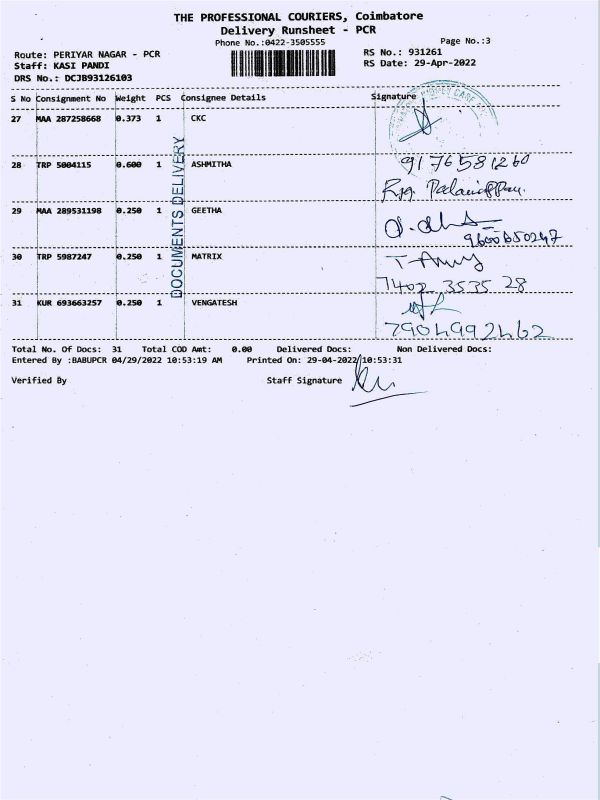 THE PROFESSIONAL COURIERS, Coimbatore
Delivery Runsheet - PCR
Phone No.:0422-3505555
Page No.:3
Route: PERIYAR NAGAR - PCR
RS No.: 931261
Staff: KASI PANDI
RS Date: 29-Apr-2022
DRS No.: DCJB93126103
S No Consignment No Weight PCS Consignee Details Signature
27 MAA 287258668 0.373 1 CKC
28 TRP 5004115 0.600 1 ASHMITHA 9176581260
29 MAA 289531198 0.250 1 GEETHA
9600650247
30 TRP 5987247 0.250 1 MATRIX
7402 3535 28
31 KUR 693663257 0.250 1 VENGATESH
7904992462
DOCUMENTS DELIVERY
Total No. Of Docs: 31 Total COD Amt: 0.00 Delivered Docs: Non Delivered Docs:
Entered By :BABUPCR 04/29/2022 10:53:19 AM Printed On: 29-04-2022 10:53:31
Verified By Staff Signature